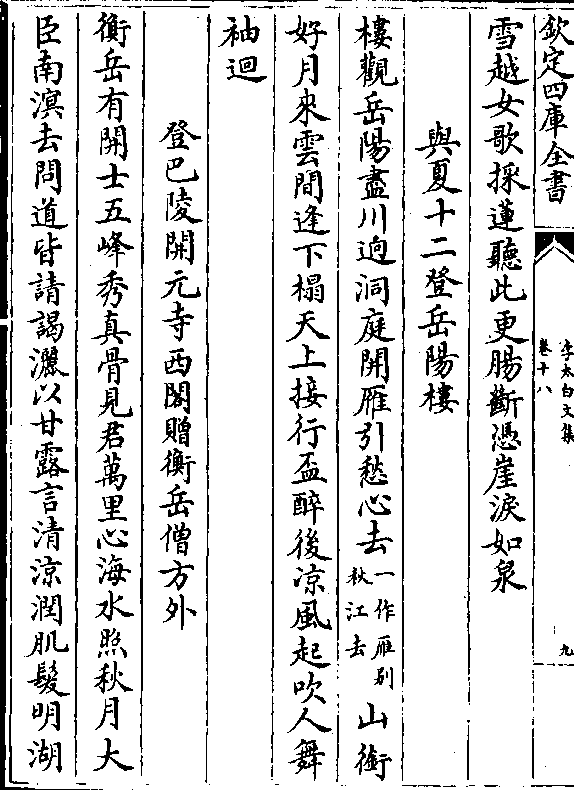 欽定四庫全書
李太白文集
卷十八
九
雪越女歌採蓮聽此更腸斷憑崖淚如泉
與夏十二登岳陽樓
樓觀岳陽盡川逈洞庭開雁引愁心去一作雁别秋江去山銜
好月來雲間逢下榻天上接行盃醉後凉風起吹人舞
袖迴
登巴陵開元寺西閣贈衡岳僧方外
衡岳有開士五峰秀真骨見君萬里心海水照秋月大
臣南溟去問道皆請謁灑以甘露言清凉潤肌髮明湖